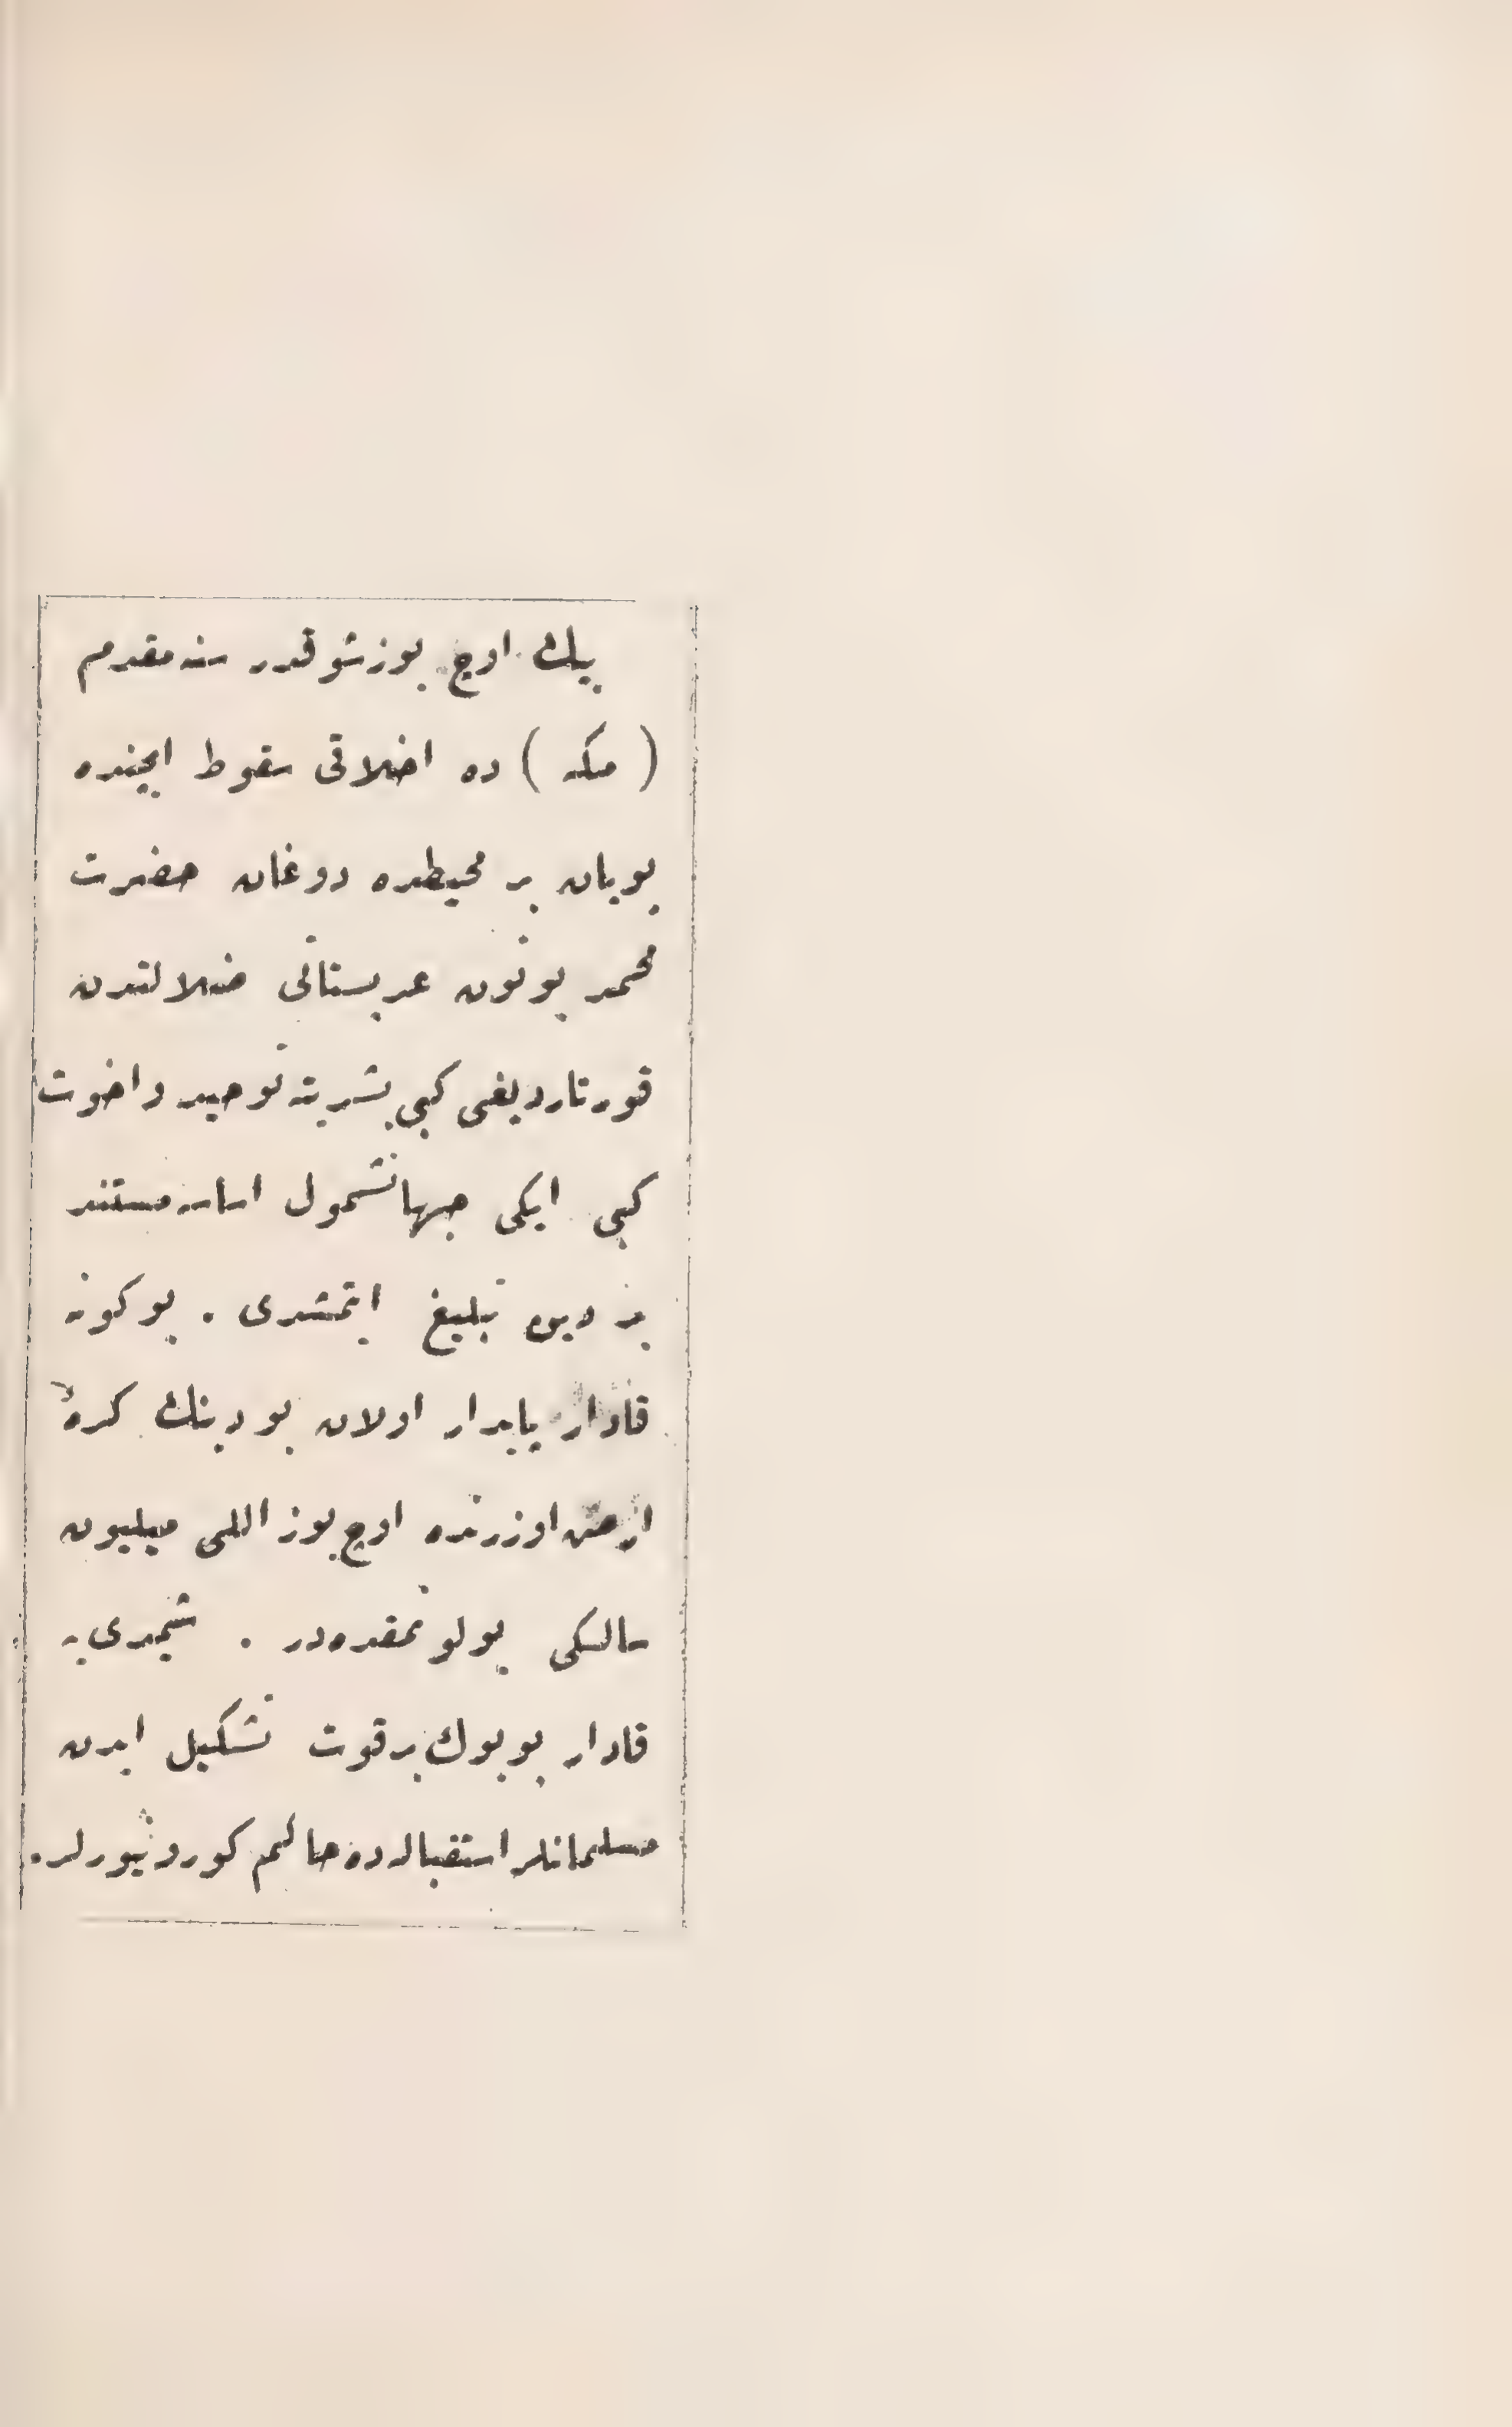 بیك اوچ یوز شو قدر سنه مقدم
( مكه ) ده اخلاقی سقوط ایچنده
بویان بر محیطده دوغان حضرت
محمد بوتون عربستانی ضلالتدن
قورتاردیغی كبی بشریته توحید واخوت
كبی ایكی جهانشمول اساسه مستند
بر دین تبلیغ ایتمشدی . بو كونه
قادار پایدار اولان بو دینك كرهٔ
ارض اوزرنده اوچ یوز اللی میلیون
سالكی بولونمقده‌در . شیمدی یه
قادار بویوك بر قوت تشكیل ایدن
مسلمانلر استقبالده ده حاكم كورونیورلر.